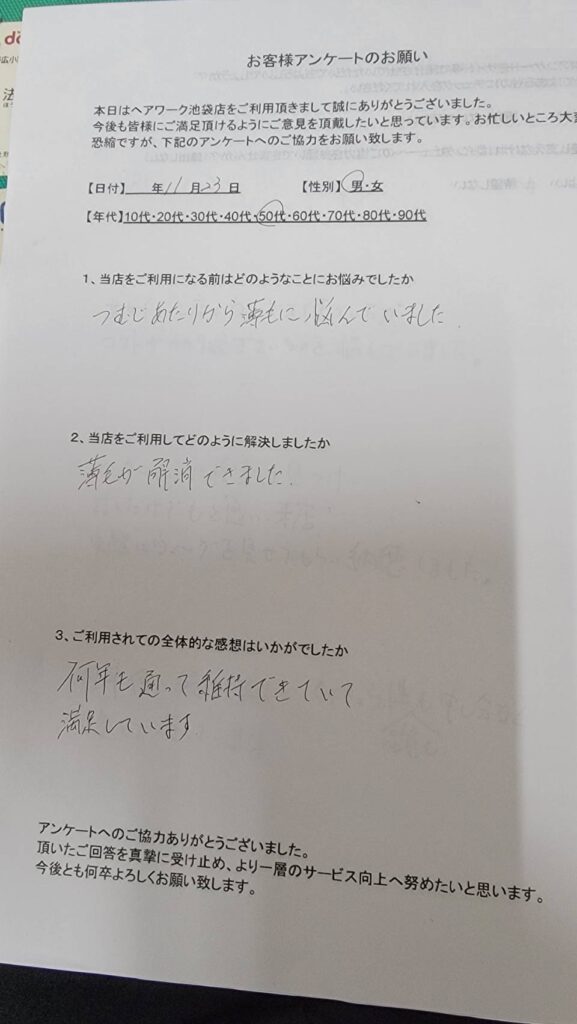 お客様アンケートのお願い
本日はヘアワーク池袋店をご利用頂きまして誠にありがとうございました。
今後も皆様にご満足頂けるようにご意見を頂戴したいと思っています。お忙しいところ大
恐縮ですが、下記のアンケートへのご協力をお願い致します。
【日付】 年 11 月 23 日 【性別】 男・女
【年代】10代・20代・30代・40代・50代・60代・70代・80代・90代
1、当店をご利用になる前はどのようなことにお悩みでしたか
つむじあたりから薄毛に悩んでいました.
2、当店をご利用してどのように解決しましたか
薄毛が解消できました.
3、ご利用されての全体的な感想はいかがでしたか
何年も通って維持できていて
満足しています
アンケートへのご協力ありがとうございました。
頂いたご回答を真摯に受け止め、より一層のサービス向上へ努めたいと思います。
今後とも何卒よろしくお願い致します。